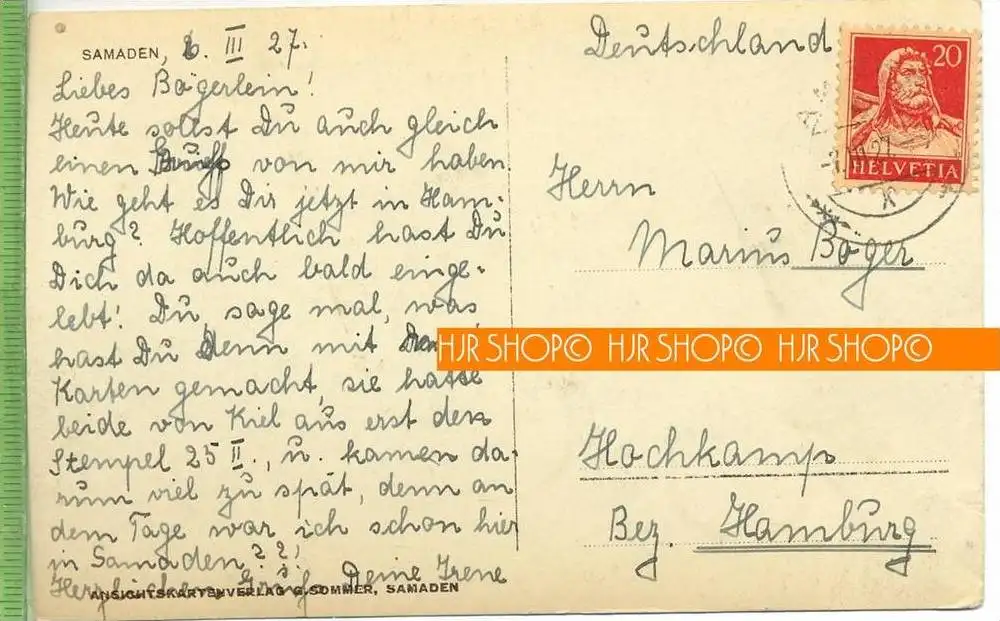 SAMADEN, 6. III 27.
Liebes Bögerlein!
Heute sollst Du auch gleich
einen Brief von mir haben
Wie geht es Dir jetzt in Ham-
burg? Hoffentlich hast Du
Dich da auch bald einge-
lebt! Du sage mal, was
hast Du denn mit
Karten gemacht, sie hatte
beide von Kiel aus erst den
Stempel 25 II., u. kamen da-
rum viel zu spät, denn an
dem Tage war ich schon hier
in Samaden??!
Herzlichen Gruß Deine Irene
ANSICHTSKARTENVERLAG G. SOMMER, SAMADEN
Deutschland
20
HELVETIA
Herrn
Marius Böger
HJR SHOP© HJR SHOP© HJR SHOP©
Hochkamp
Bez. Hamburg